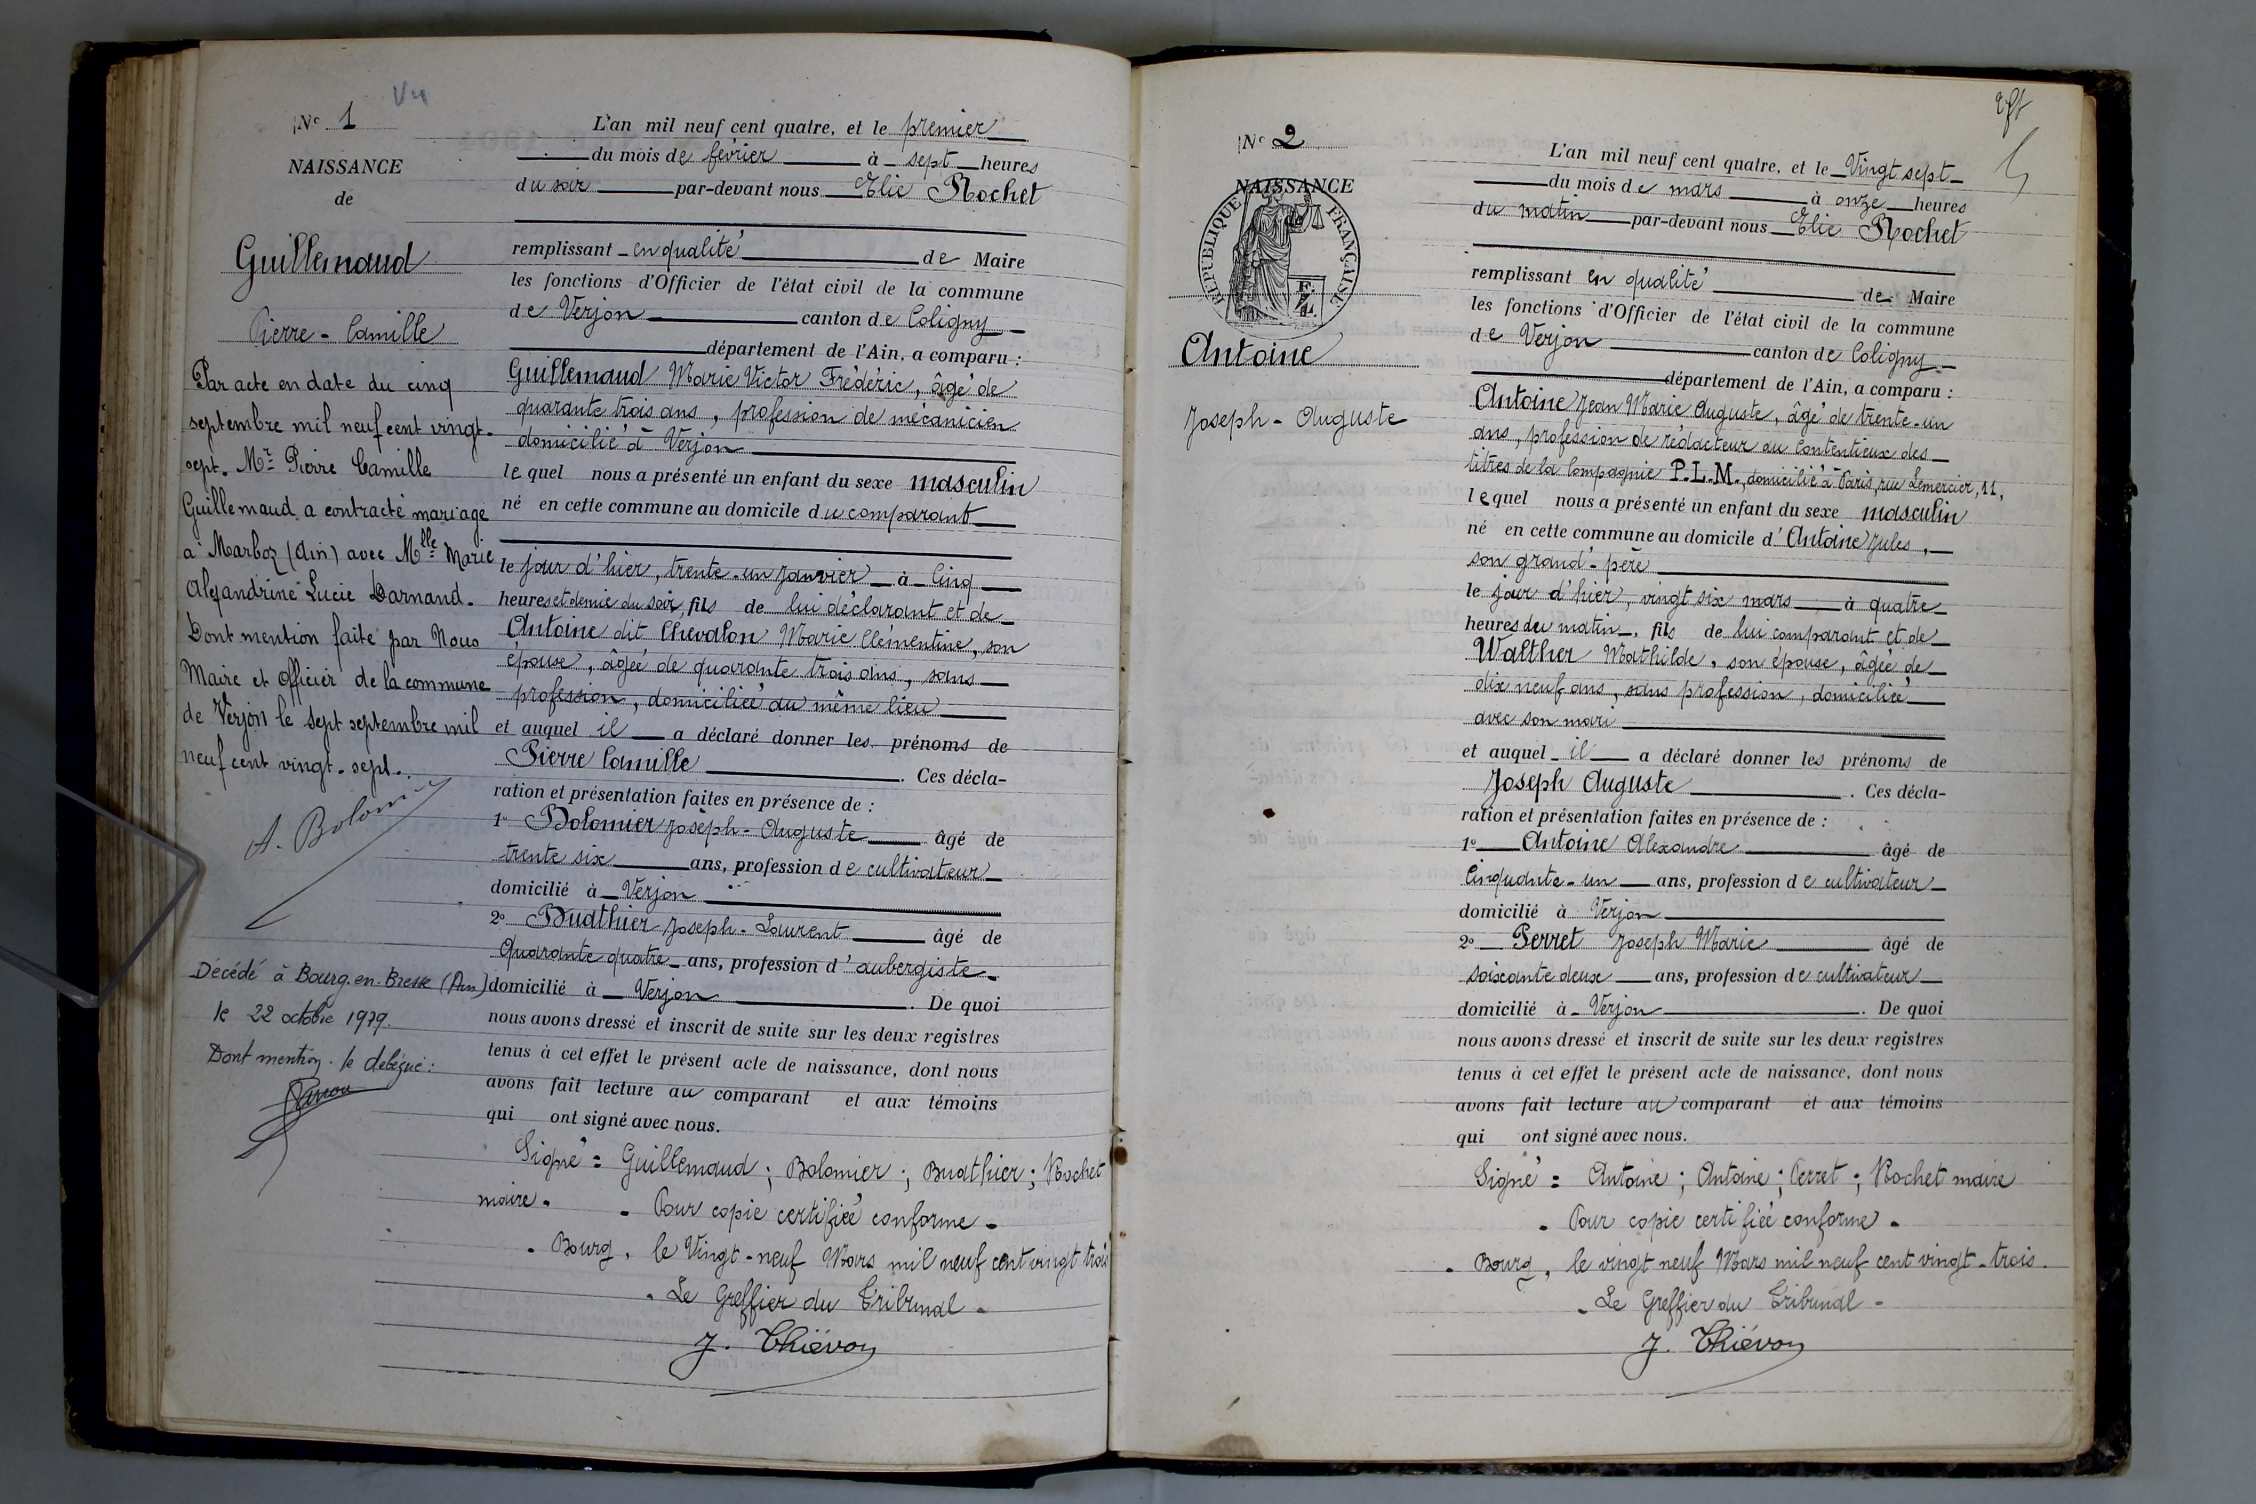 Vu
N° 1
NAISSANCE
de
Guillemaud
Pierre - Camille
Par acte en date du cinq
septembre mil neuf cent vingt-
sept. Mr Pierre Camille
Guillemaud a contracté mariage
à Marboz (Ain) avec Mlle Marie
Alexandrine Lucie Darnand.
Dont mention faite par Nous
Maire et Officier de la commune
de Verjon le sept septembre mil
neuf cent vingt-sept.
A. Bolomier
Décédé à Bourg-en-Bresse (Ain)
le 22 octobre 1979.
Dont mention. le délégué:
L'an mil neuf cent quatre, et le premier
du mois de février à sept heures
du soir par-devant nous Elie Rochet
remplissant en qualité de Maire
les fonctions d'Officier de l'état civil de la commune
de Verjon canton de Coligny
département de l'Ain, a comparu :
Guillemaud Marie Victor Frédéric, âgé de
quarante trois ans, profession de mécanicien
domicilié à Verjon
lequel nous a présenté un enfant du sexe masculin
né en cette commune au domicile du comparant
le jour d'hier, trente-un janvier à cinq
heures et demie du soir, fils de lui déclarant et de
Antoine dit Chevalon Marie Clémentine, son
épouse, âgée de quarante trois ans, sans
profession, domiciliée au même lieu
et auquel il a déclaré donner les prénoms de
Pierre Camille. Ces décla-
ration et présentation faites en présence de :
1° Bolomier Joseph-Auguste âgé de
trente six ans, profession de cultivateur
domicilié à Verjon
2° Buathier Joseph-Laurent âgé de
Quarante quatre ans, profession d'aubergiste
domicilié à Verjon. De quoi
nous avons dressé et inscrit de suite sur les deux registres
tenus à cet effet le présent acte de naissance, dont nous
avons fait lecture au comparant et aux témoins
qui ont signé avec nous.
Signé = Guillemaud ; Bolomier ; Buathier ; Rochet
maire.
- Pour copie certifiée conforme -
- Bourg, le Vingt-neuf Mars mil neuf cent vingt trois
- Le Greffier du Tribunal -
J. Thiévon
N° 2
NAISSANCE
de
RÉPUBLIQUE FRANÇAISE
Antoine
Joseph - Auguste
L'an mil neuf cent quatre, et le Vingt sept
du mois de mars à onze heures
du matin par-devant nous Elie Rochet
remplissant en qualité de Maire
les fonctions d'Officier de l'état civil de la commune
de Verjon canton de Coligny
département de l'Ain, a comparu :
Antoine Jean Marie Auguste, âgé de trente-un
ans, profession de rédacteur au Contentieux des
titres de la Compagnie P.L.M., domicilié à Paris, rue Lemercier, 11,
lequel nous a présenté un enfant du sexe masculin
né en cette commune au domicile d'Antoine Jules,
son grand-père
le jour d'hier, vingt six mars à quatre
heures du matin, fils de lui comparant et de
Walther Mathilde, son épouse, âgée de
dix neuf ans, sans profession, domiciliée
avec son mari
et auquel il a déclaré donner les prénoms de
Joseph Auguste. Ces décla-
ration et présentation faites en présence de :
1° Antoine Alexandre âgé de
Cinquante-un ans, profession de cultivateur
domicilié à Verjon
2° Perret Joseph Marie âgé de
soixante deux ans, profession de cultivateur
domicilié à Verjon. De quoi
nous avons dressé et inscrit de suite sur les deux registres
tenus à cet effet le présent acte de naissance, dont nous
avons fait lecture au comparant et aux témoins
qui ont signé avec nous.
Signé = Antoine ; Antoine ; Perret ; Rochet maire
- Pour copie certifiée conforme -
- Bourg, le vingt neuf Mars mil neuf cent vingt-trois.
- Le Greffier du Tribunal -
J. Thiévon